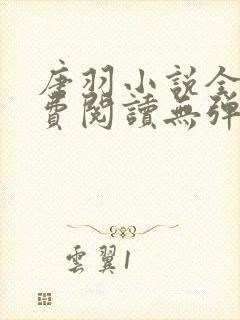 唐羽小說全
費閱讀無彈
雲翼1